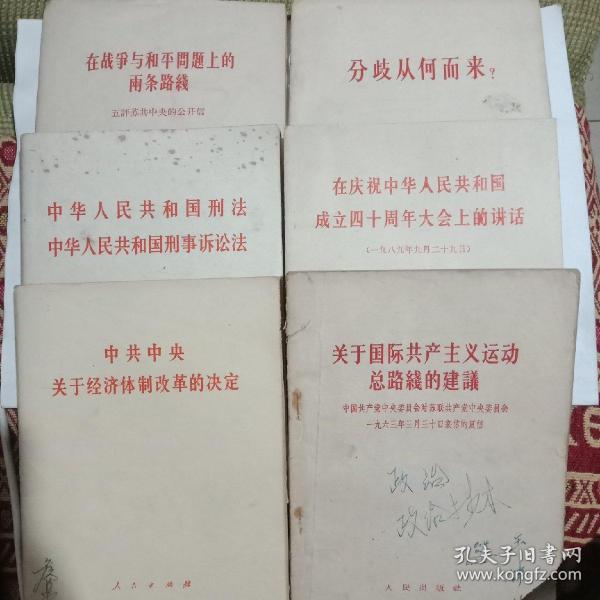 在战爭与和平問題上的
兩条路綫
五評苏共中央的公开信
分歧从何而来？
中华人民共和国刑法
中华人民共和国刑事诉讼法
在庆祝中华人民共和国
成立四十周年大会上的讲话
（一九八九年九月二十九日）
中共中央
关于经济体制改革的决定
人民出版社
关于国际共产主义运动
总路綫的建議
中国共产党中央委員会对苏联共产党中央委員会
一九六三年三月三十日来信的复信
政治
政治
人民出版社
孔夫子旧书网
www.kongfz.com